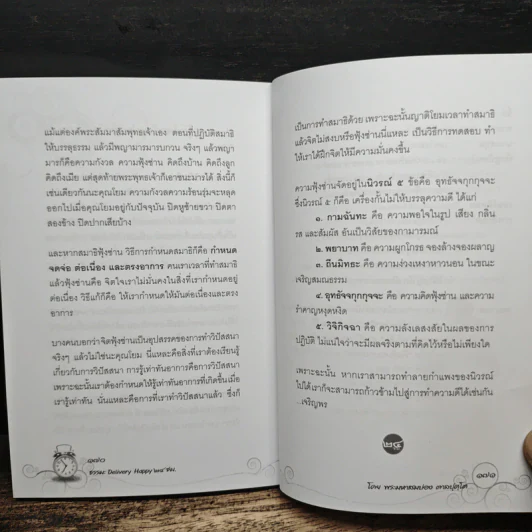 แม้แต่องค์พระสัมมาสัมพุทธเจ้าเอง ตอนที่ปฏิบัติสมาธิ
ให้บรรลุธรรม แล้วมีพญามารมารบกวน จริงๆ แล้วพญา
มารก็คือความกังวล ความฟุ้งซ่าน คิดถึงบ้าน คิดถึงลูก
คิดถึงเมีย แต่สุดท้ายพระพุทธเจ้าก็เอาชนะมารได้ สิ่งนี้ก็
เช่นเดียวกันนะคุณโยม ความกังวลความร้อนรุ่มจะหลุด
ออกไปเมื่อคุณโยมอยู่กับปัจจุบัน ปิดหูซ้ายขวา ปิดตา
สองข้าง ปิดปากเสียบ้าง
และหากสมาธิฟุ้งซ่าน วิธีการกำหนดสมาธิก็คือ กำหนด
จดจ่อ ต่อเนื่อง และตรงอาการ คนเราเวลาที่ทำสมาธิ
แล้วฟุ้งซ่านคือ จิตใจเราไม่มั่นคงในสิ่งที่เรากำหนดอยู่
ต่อเนื่อง วิธีแก้ก็คือ ให้เรากำหนดให้มันต่อเนื่องและตรง
อาการ
บางคนบอกว่าจิตฟุ้งซ่านเป็นอุปสรรคของการทำวิปัสสนา
จริงๆ แล้วไม่ใช่นะคุณโยม นี่แหละคือสิ่งที่เราต้องเรียนรู้
เกี่ยวกับการวิปัสสนา การรู้เท่าทันอาการคือการวิปัสสนา
เพราะฉะนั้นเราต้องกำหนดให้รู้เท่าทันอาการที่เกิดขึ้นเมื่อ
เรารู้เท่าทัน นั่นแหละคือการที่เราทำวิปัสสนาแล้ว ซึ่งก็
๑๗๐
ธรรมะ Delivery Happy ๒๔ ชม.
เป็นการทำสมาธิด้วย เพราะฉะนั้นญาติโยมเวลาทำสมาธิ
แล้วจิตไม่สงบหรือฟุ้งซ่านนี่แหละ เป็นวิธีการทดสอบ ทำ
ให้เราได้ฝึกจิตให้มีความมั่นคงขึ้น
ความฟุ้งซ่านจัดอยู่ในนิวรณ์ ๕ ข้อคือ อุทธัจจกุกกุจจะ
ซึ่งนิวรณ์ ๕ ก็คือ เครื่องกั้นไม่ให้บรรลุความดี ได้แก่
๑. กามฉันทะ คือ ความพอใจในรูป เสียง กลิ่น
รส และสัมผัส อันเป็นวิสัยของกามารมณ์
๒. พยาบาท คือ ความผูกโกรธ จองล้างจองผลาญ
๓. ถีนมิทธะ คือ ความง่วงเหงาหาวนอน ในขณะ
เจริญสมณธรรม
๔. อุทธัจจกุกกุจจะ คือ ความคิดฟุ้งซ่าน และความ
รำคาญหงุดหงิด
๕. วิจิกิจฉา คือ ความลังเลสงสัยในผลของการ
ปฏิบัติ ไม่แน่ใจว่าจะมีผลจริงตามที่คิดไว้หรือไม่เพียงใด
เพราะฉะนั้น หากเราสามารถทำลายกำแพงของนิวรณ์
ไปได้เราก็จะสามารถก้าวข้ามไปสู่การทำความดีได้เช่นกัน
...เจริญพร
๒๔
๑๗๑
โดย พระมหาสมปอง ตาลปุตฺโต